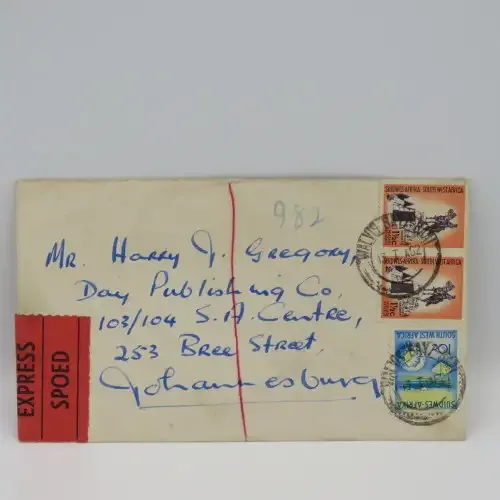 982
Mr. Harry J. Gregory,
Day Publishing Co,
103/104 S.A. Centre,
253 Bree Street,
Johannesburg
EXPRESS
SPOED
SUIDWES-AFRIKA SOUTH WEST AFRICA
1½c
SUIDWES-AFRIKA SOUTH WEST AFRICA
1½c
SOUTH WEST AFRICA
10c
SUIDWES-AFRIKA